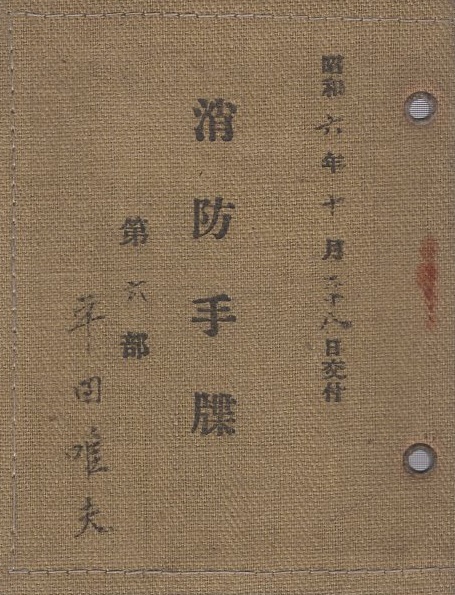 昭和六年十月二十八日交付
消防手牒
第六部
平田唯夫